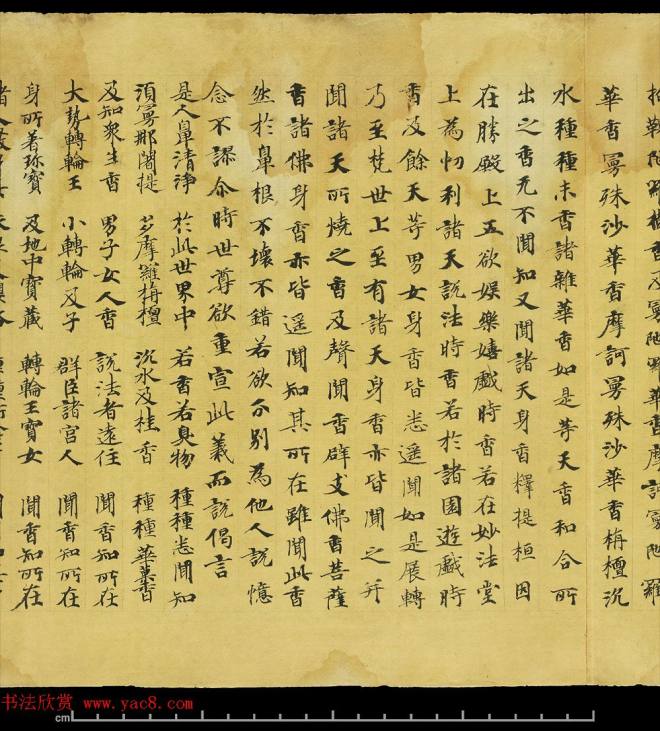 陀羅樹香及曼陀羅華香摩訶曼陀羅
華香曼殊沙華香摩訶曼殊沙華香栴檀沉
水種種末香諸雜華香如是等天香和合所
出之香无不聞知又聞諸天身香釋提桓因
在勝殿上五欲娛樂嬉戲時香若在妙法堂
上為忉利諸天說法時香若於諸園遊戲時
香及餘天等男女身香皆悉遥聞如是展轉
乃至梵世上至有諸天身香亦皆聞之并
聞諸天所燒之香及聲聞香辟支佛香菩薩
香諸佛身香亦皆遥聞知其所在雖聞此香
然於鼻根不壞不錯若欲分別為他人說憶
念不謬尒時世尊欲重宣此義而說偈言
是人鼻清淨 於此世界中 若香若臭物 種種悉聞知
須曼那闍提 多摩羅栴檀 沉水及桂香 種種華菓香
及知衆生香 男子女人香 說法者遠住 聞香知所在
大勢轉輪王 小轉輪及子 群臣諸宮人 聞香知所在
身所著珍寶 及地中寶藏 轉輪王寶女 聞香知所在
书法欣赏 www.yac8.com
cm